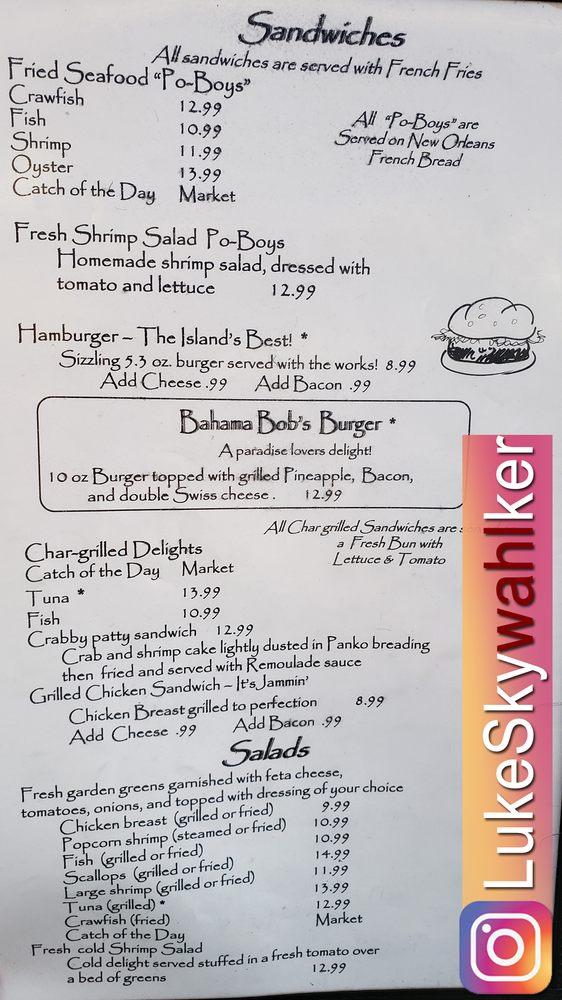 Sandwiches
All sandwiches are served with French Fries
Fried Seafood "Po-Boys"
Crawfish 12.99
Fish 10.99
Shrimp 11.99
Oyster 13.99
Catch of the Day Market
All "Po-Boys" are
Served on New Orleans
French Bread
Fresh Shrimp Salad Po-Boys
Homemade shrimp salad, dressed with
tomato and lettuce 12.99
Hamburger – The Island's Best! *
Sizzling 5.3 oz. burger served with the works! 8.99
Add Cheese .99 Add Bacon .99
Bahama Bob's Burger *
A paradise lovers delight!
10 oz Burger topped with grilled Pineapple, Bacon,
and double Swiss cheese . 12.99
All Char grilled Sandwiches are
a Fresh Bun with
Lettuce & Tomato
Char-grilled Delights
Catch of the Day Market
Tuna * 13.99
Fish 10.99
Crabby patty sandwich 12.99
Crab and shrimp cake lightly dusted in Panko breading
then fried and served with Remoulade sauce
Grilled Chicken Sandwich – It's Jammin'
Chicken Breast grilled to perfection 8.99
Add Cheese .99 Add Bacon .99
Salads
Fresh garden greens garnished with feta cheese,
tomatoes, onions, and topped with dressing of your choice
Chicken breast (grilled or fried) 9.99
Popcorn shrimp (steamed or fried) 10.99
Fish (grilled or fried) 10.99
Scallops (grilled or fried) 14.99
Large shrimp (grilled or fried) 11.99
Tuna (grilled) * 13.99
Crawfish (fried) 12.99
Catch of the Day Market
Fresh cold Shrimp Salad
Cold delight served stuffed in a fresh tomato over
a bed of greens 12.99
LukeSkywahlker